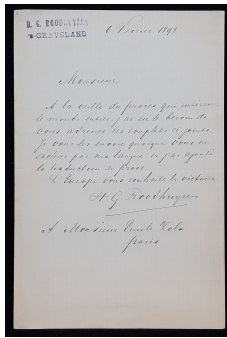 H. G. ROODHUYZEN
'S-GRAVELAND
6 Février 1898
Monsieur,
A la veille du procès qui intéresse
le monde entier j'ai senti le besoin de
vous adresser les couplets ci-joints.
Je vous les envoie quoique vous ne
sachiez pas ma langue et j'ai ajouté
la traduction en prose.
L'Europe vous souhaite la victoire
H G Roodhuyzen
A Monsieur Emile Zola
Paris